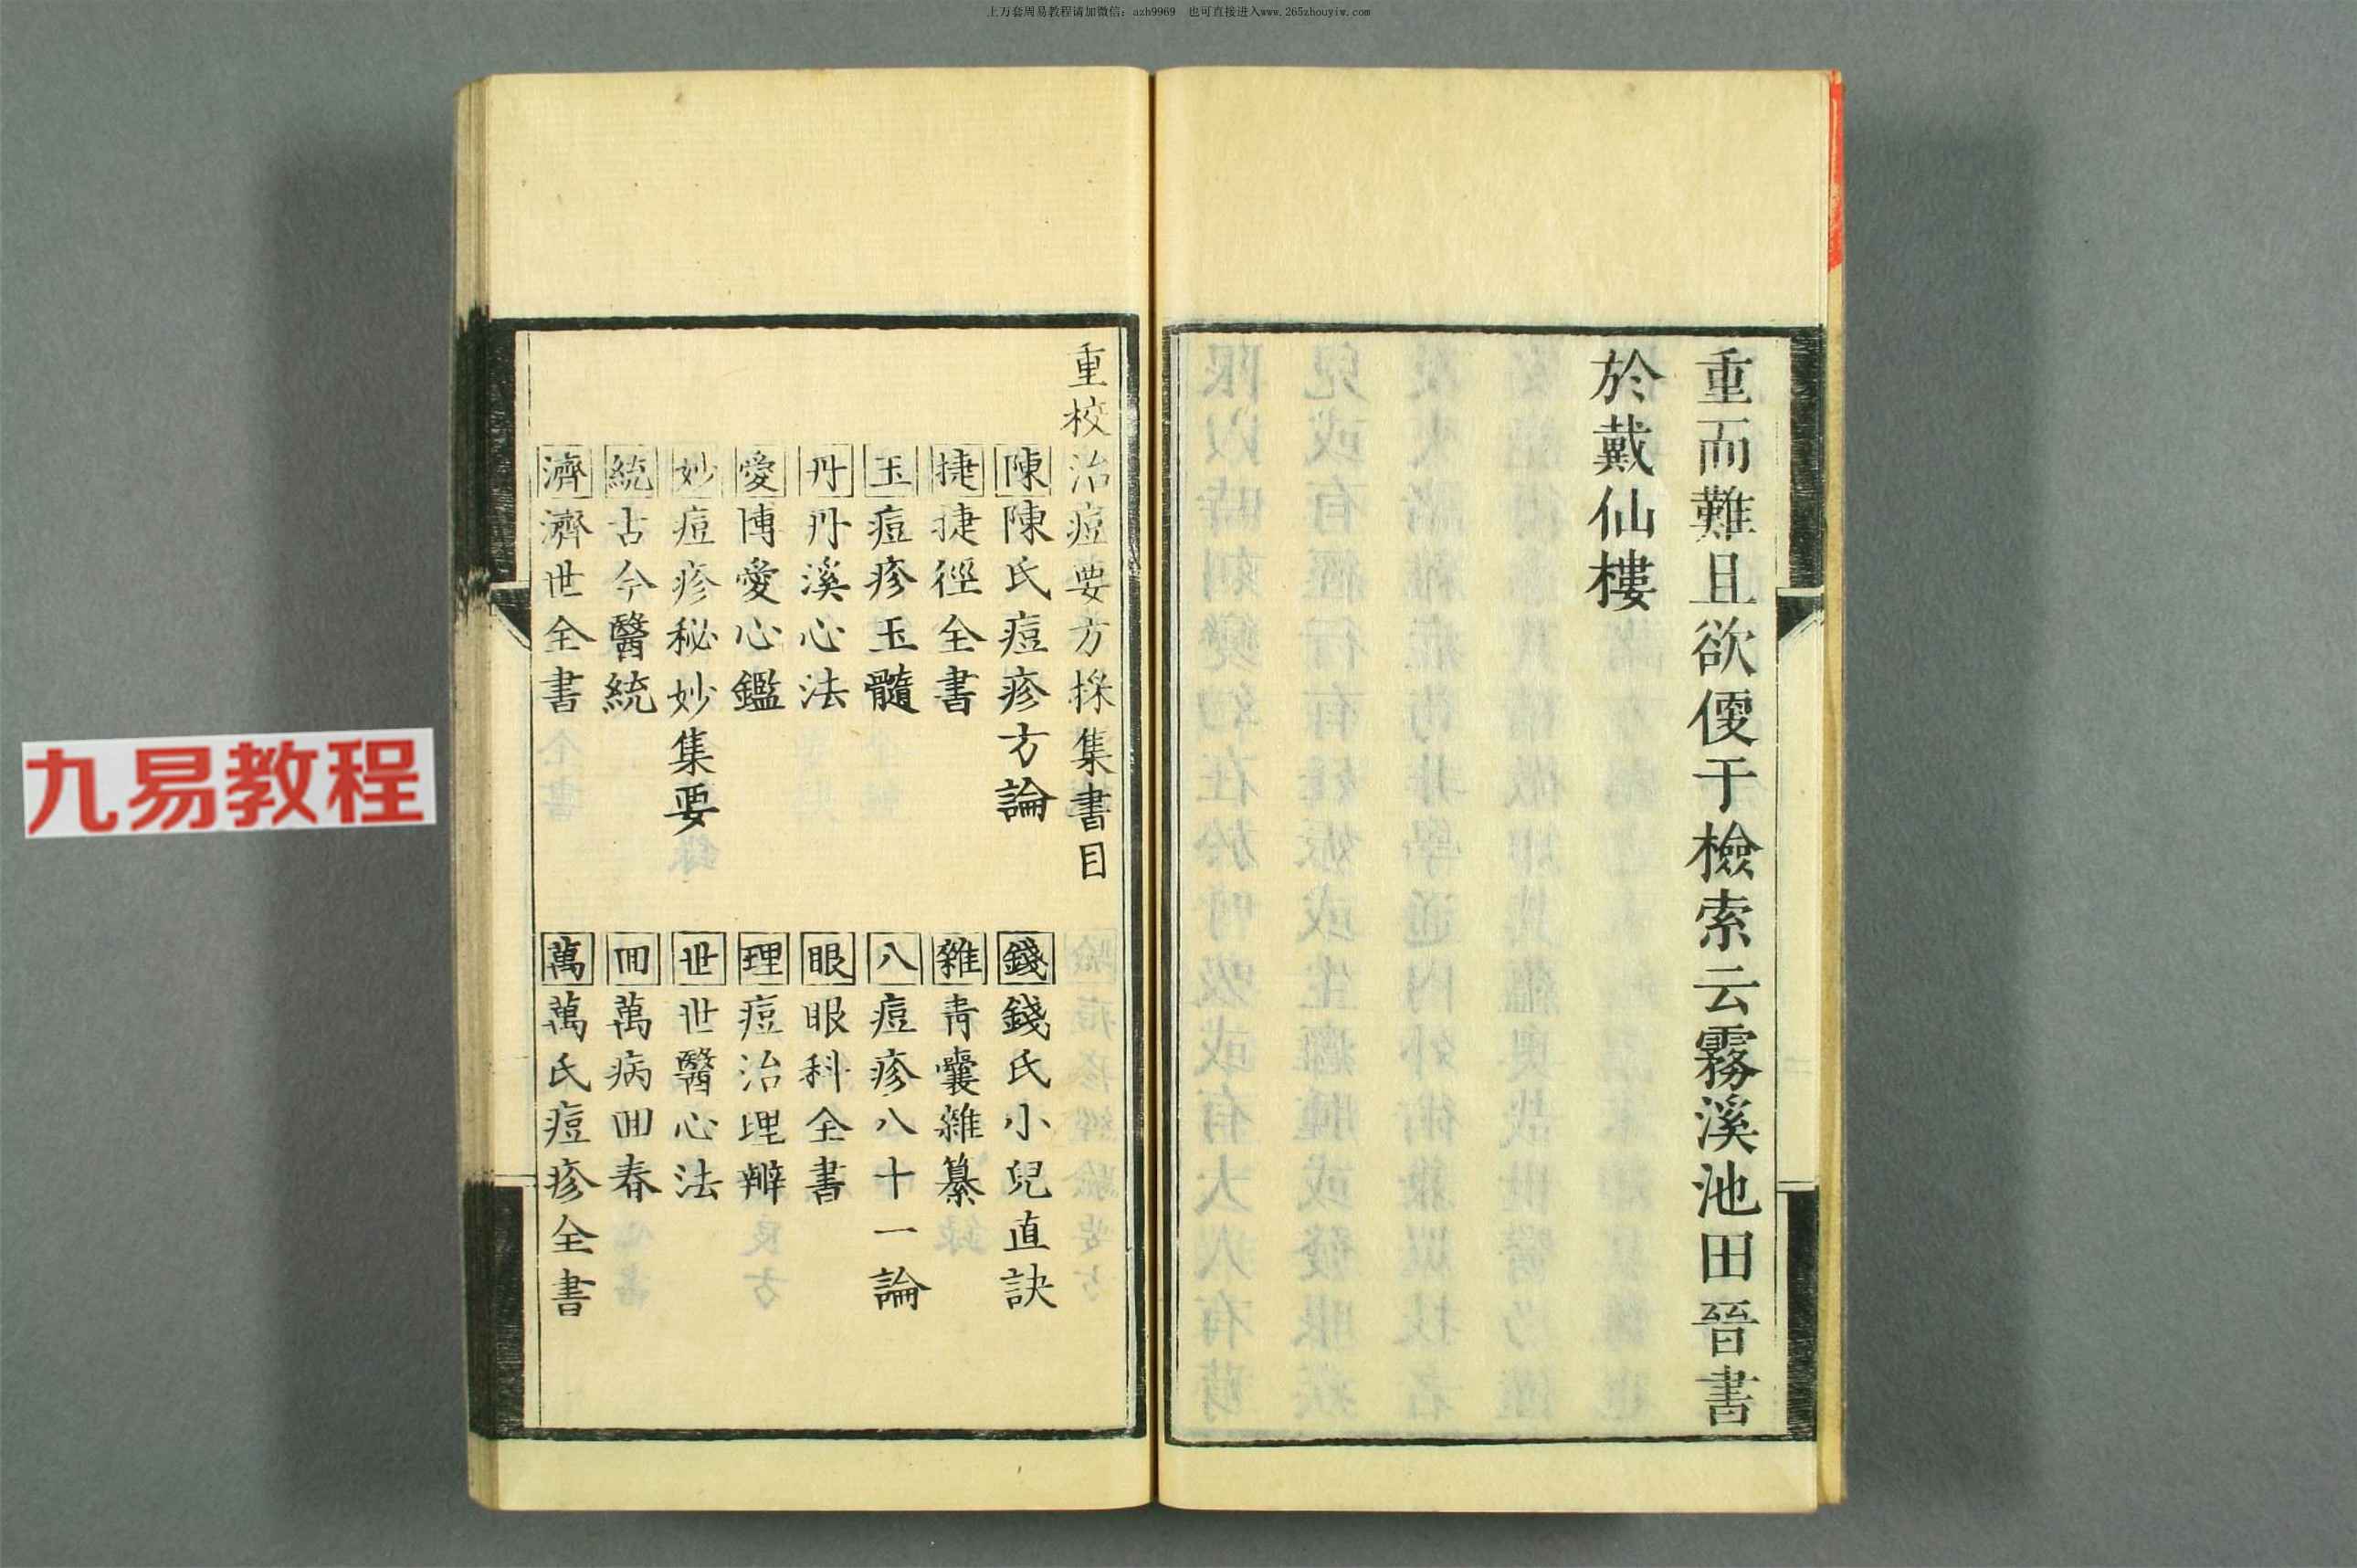 上万套周易教程请加微信：azh9969 也可直接进入www.265zhouyiw.com
重而難且欲便于檢索云霧溪池田晉書
於戴仙樓
重校治痘要方採集書目
陳 陳氏痘疹方論
錢 錢氏小兒直訣
捷 捷徑全書
雜 青囊雜纂
玉 痘疹玉髓
八 痘疹八十一論
丹 丹溪心法
眼 眼科全書
愛 博愛心鑑
理 痘治理辨
妙 痘疹秘妙集要
世 世醫心法
統 古今醫統
回 萬病回春
濟 濟世全書
萬 萬氏痘疹全書
九易教程